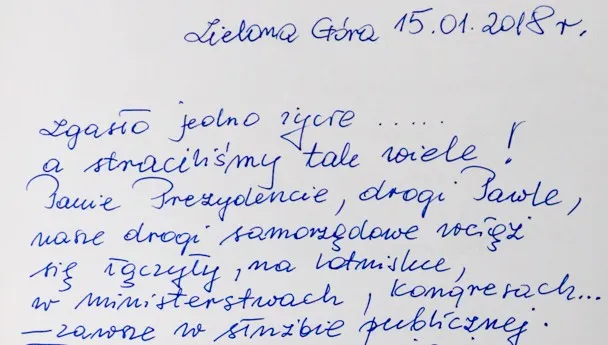 Zielona Góra 15.01.2018 r.
Zgasło jedno życie .....
a straciliśmy tak wiele !
Panie Prezydencie, drogi Pawle,
nasze drogi samorządowe wciąż
się łączyły, na lotnisku,
w ministerstwach, kongresach...
— zawsze w służbie publicznej.